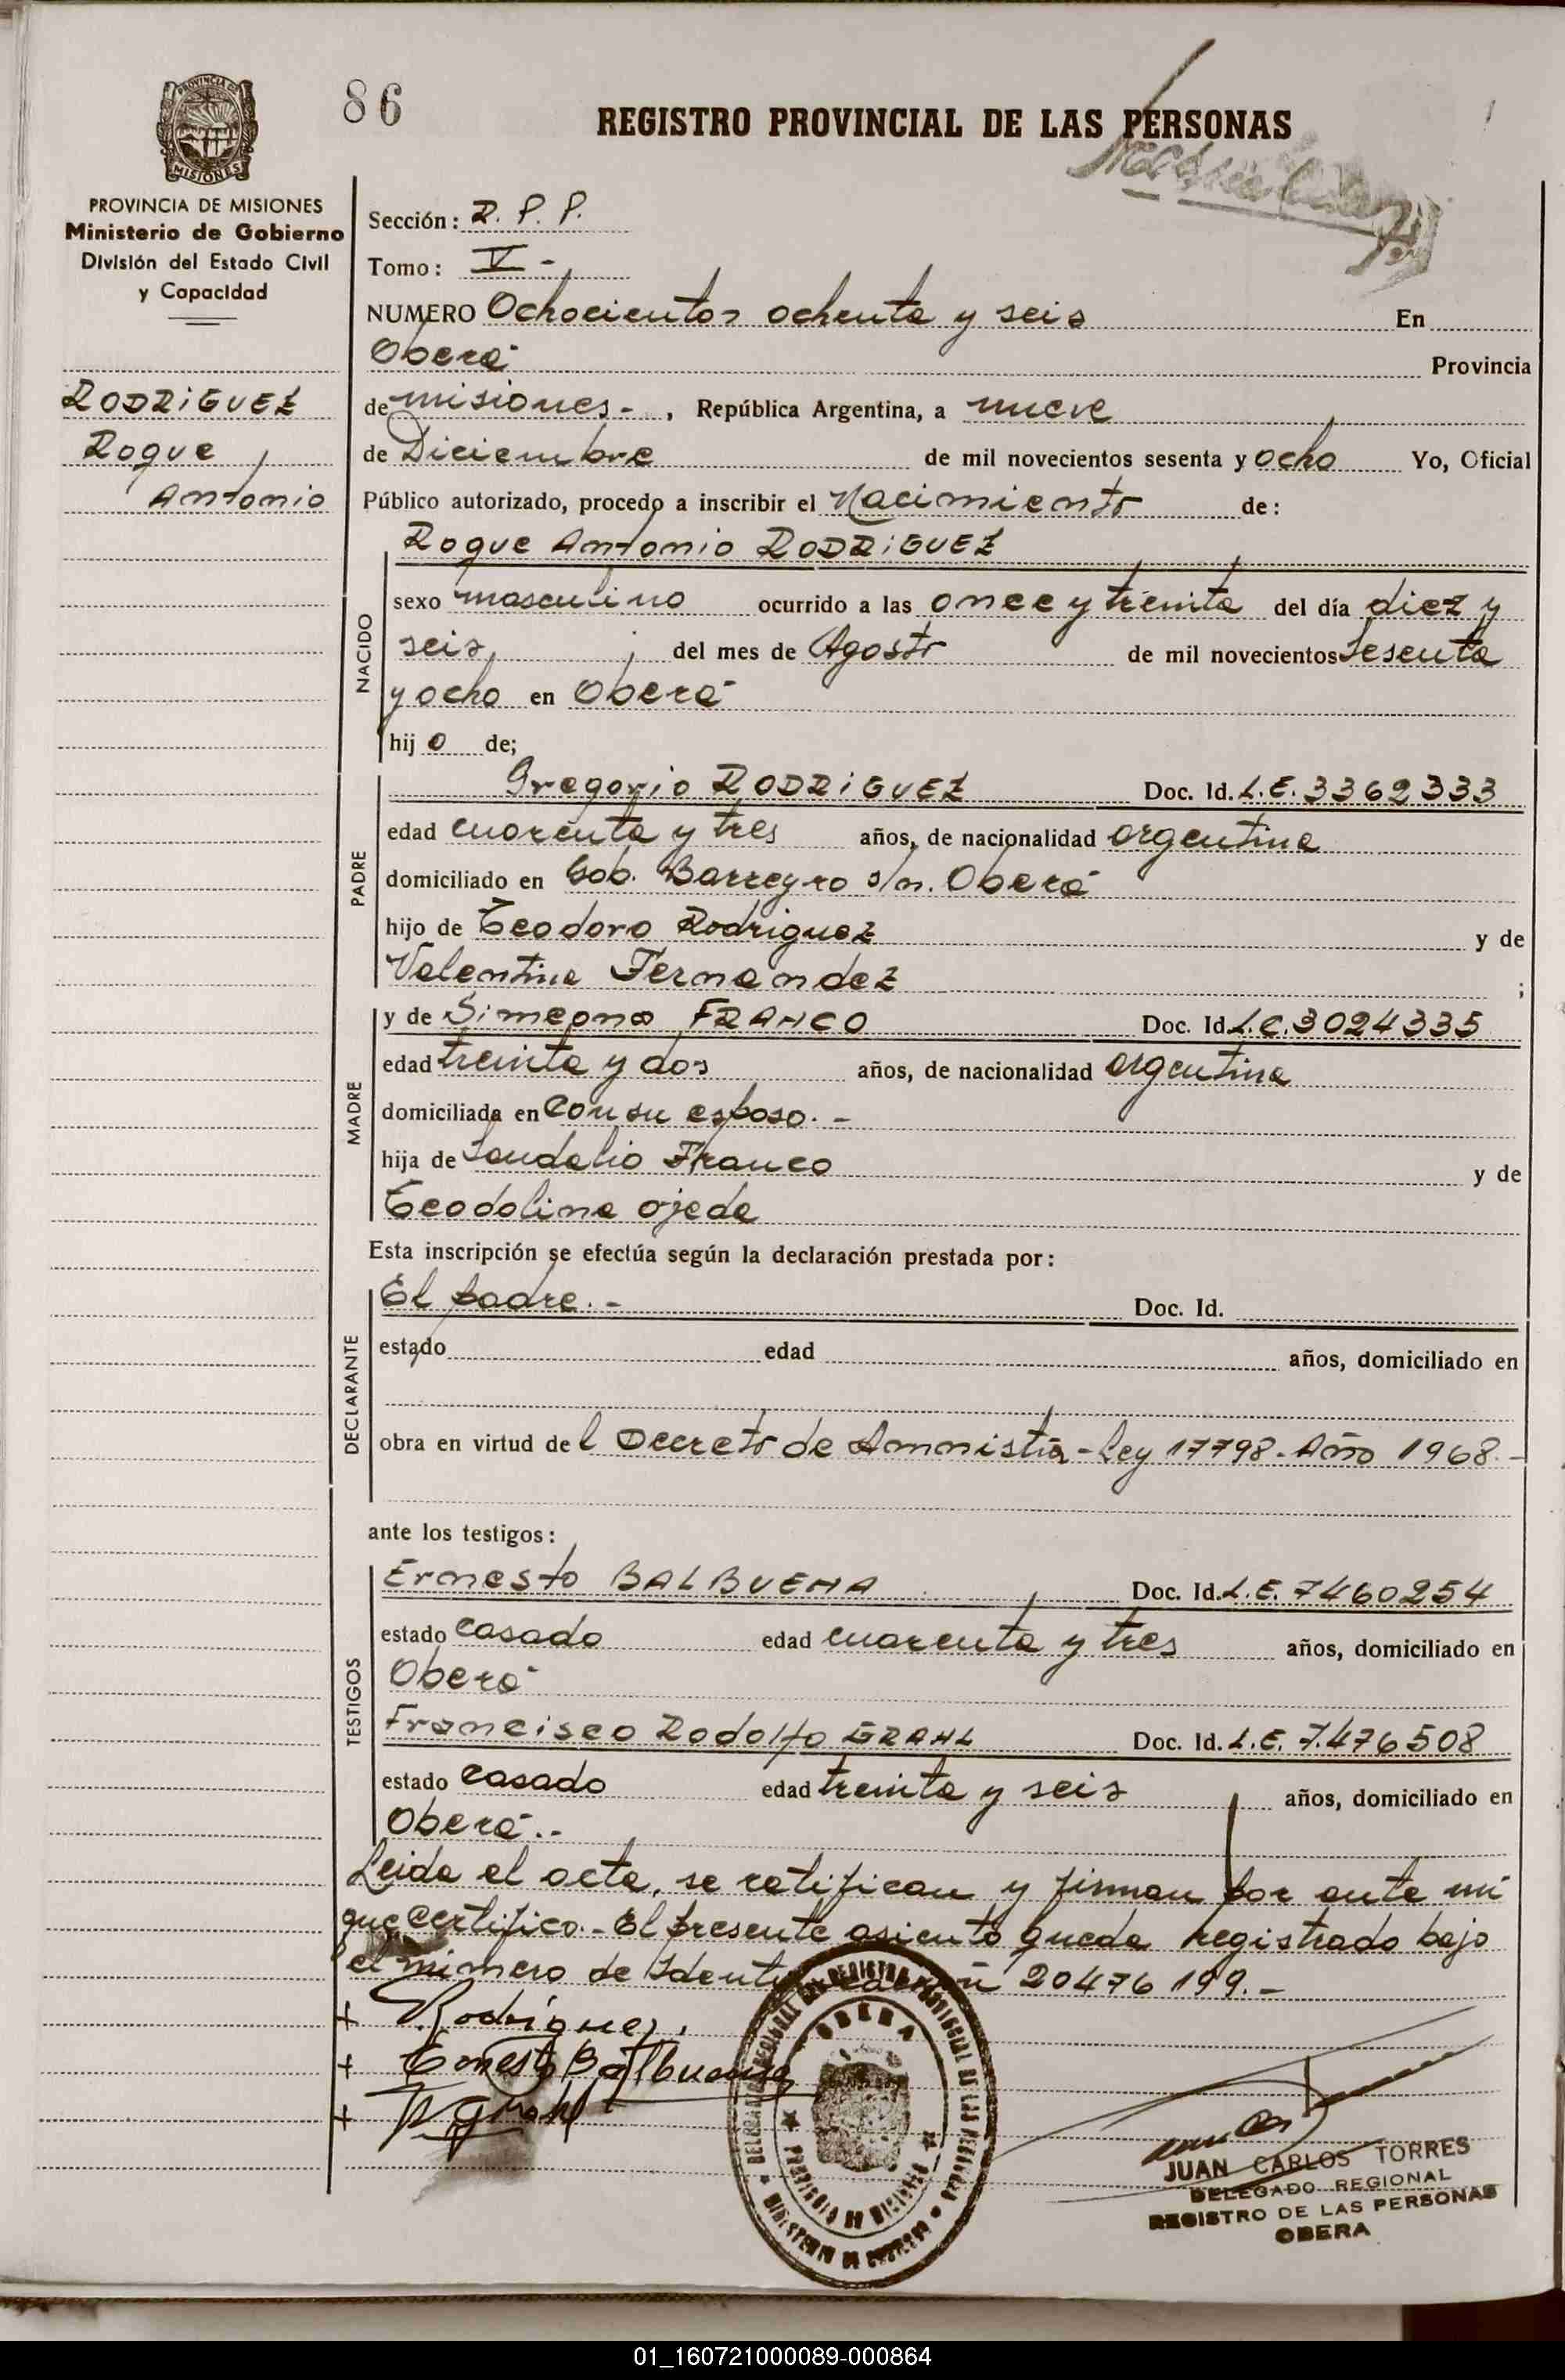 86
REGISTRO PROVINCIAL DE LAS PERSONAS
PROVINCIA DE MISIONES
Ministerio de Gobierno
División del Estado Civil
y Capacidad
RODRiGUEZ
Roque
Antonio
Sección: R. P. P.
Tomo: V -
NUMERO Ochocientos ochenta y seis En
Oberá Provincia
de misiones. , República Argentina, a nueve
de Diciembre de mil novecientos sesenta y ocho Yo, Oficial
Público autorizado, procedo a inscribir el Nacimiento de:
Roque Antonio RODRiGUEZ
NACIDO
sexo masculino ocurrido a las once y treinta del día diez y
seis, del mes de Agosto de mil novecientos sesenta
y ocho en Oberá
hij o de;
PADRE
Gregorio RODRiGUEZ Doc. Id. L.E. 3362333
edad cuarenta y tres años, de nacionalidad argentina
domiciliado en Gob. Barreyro s/n. Oberá
hijo de Teodoro Rodriguez y de
Valentina Fernandez ;
MADRE
y de Simeona FRANCO Doc. Id. L.C. 3024335
edad treinta y dos años, de nacionalidad argentina
domiciliada en con su esposo. -
hija de Sandalio Franco y de
Teodolina ojeda
Esta inscripción se efectúa según la declaración prestada por:
DECLARANTE
El padre. - Doc. Id.
estado edad años, domiciliado en
obra en virtud del Decreto de Amnistia - Ley 17798. Año 1968. -
ante los testigos:
TESTIGOS
Ernesto BALBUENA Doc. Id. L.E. 7460254
estado casado edad cuarenta y tres años, domiciliado en
Oberá
Francisco Rodolfo GRAHL Doc. Id. L.E. 7.476508
estado casado edad treinta y seis años, domiciliado en
Oberá. -
Leida el acta, se ratifican y firman por ante mi
que certifico. - El presente asiento queda registrado bajo
el número de 20476199. -
+ Rodríguez.
+ Ernesto Balbuena
+ Grahl
OBERA
PROVINCIA DE MISIONES
MINISTERIO DE GOBIERNO
JUAN CARLOS TORRES
DELEGADO REGIONAL
REGISTRO DE LAS PERSONAS
OBERA
01_160721000089-000864